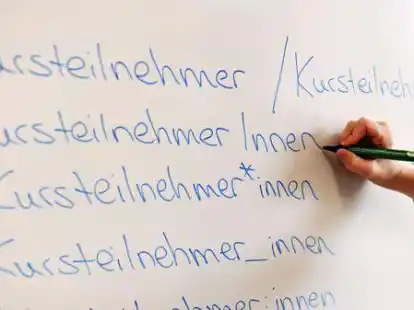 ursteilnehmer / Kursteilneh
ursteilnehmerInnen
Kursteilnehmer*innen
Kursteilnehmer_innen
nehmer:innen